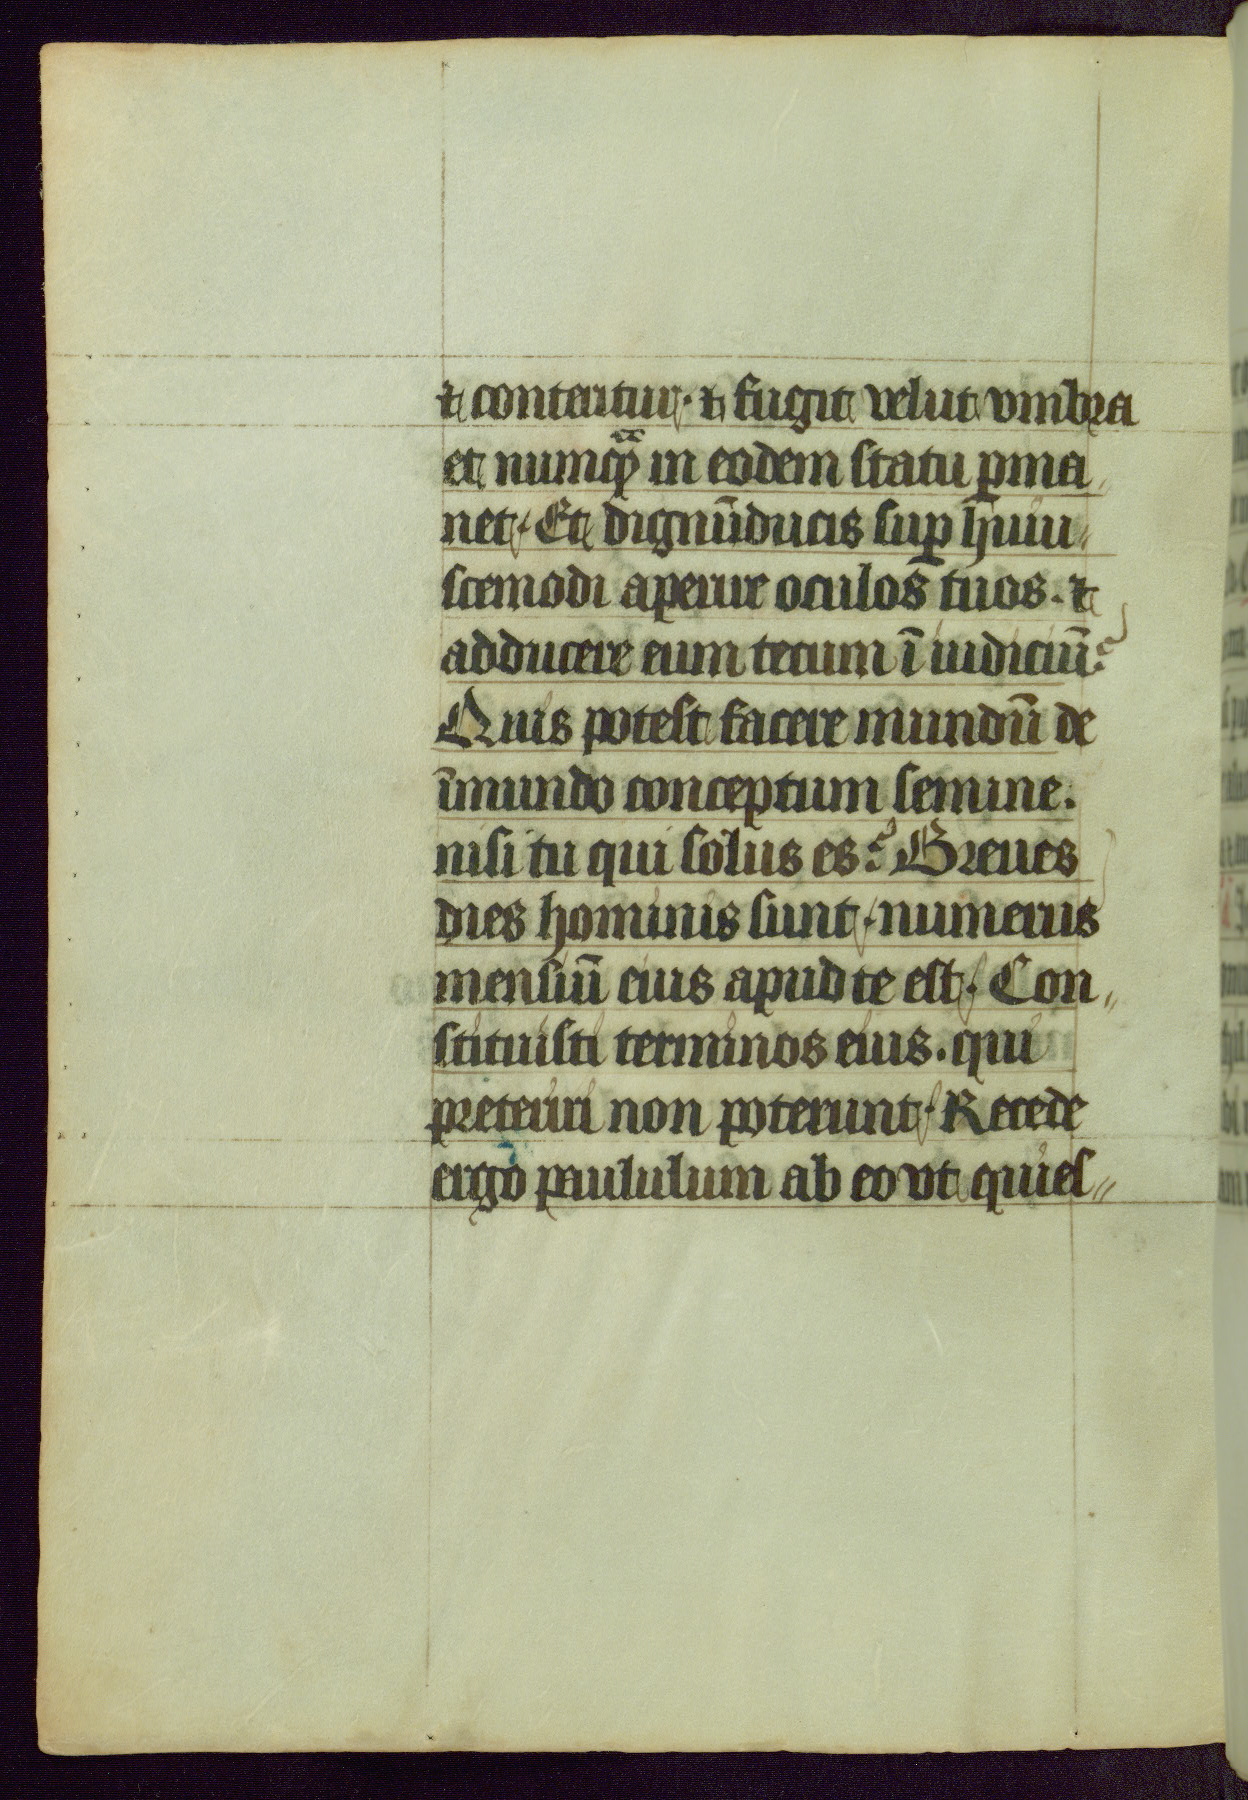 ⁊ conteritur· ⁊ fugit velut vmbra
et numqᷓ in eodem statu ꝑma
net· Et dignū ducis suꝑ huiu
scemodi aperire oculos tuos. ⁊
adducere eum tecum ī iudiciū?
Quis potest facere mundū de
īmundo conceptum semine.
nisi tu qui solus es? Breues
dies hominis sunt· numerus
mensiū eius apud te est· Con„
stituisti terminos eius. qui
preteriri non poterunt· Recede
ergo paululum ab eo vt quies„